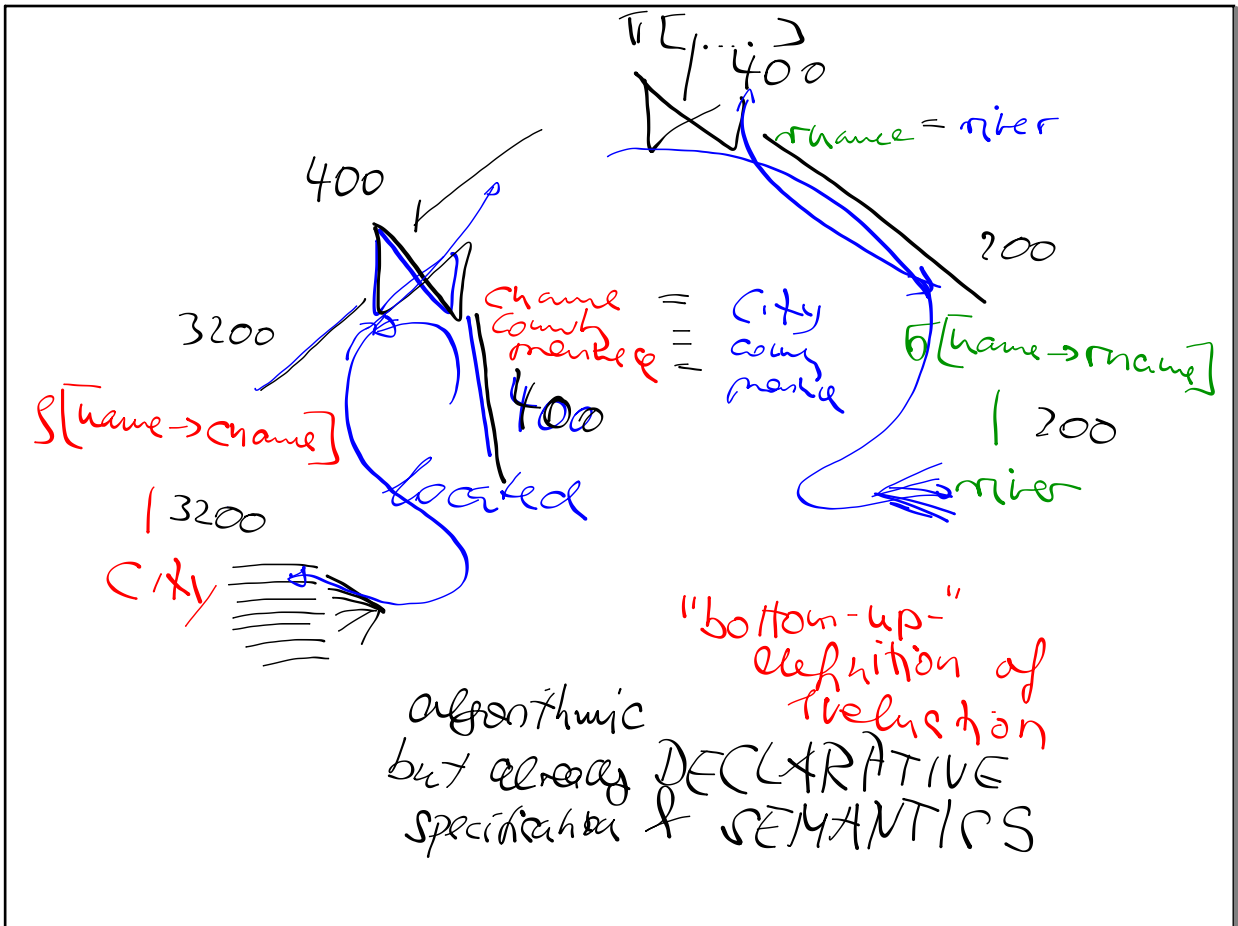 π[.....]
400
rname = river
400
200
3200
cname = City
country = country
province = province
400
σ[name→rname]
ρ[name→cname]
200
located
river
3200
City
"bottom-up-"
definition of
evaluation
algorithmic
but already DECLARATIVE
specification & SEMANTICS